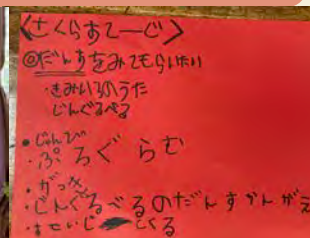 <さくらすてーじ>
◎だんすをみてもらいたい
・きみいろのうた
じんぐるべる
・じゅんび
・ぷろぐらむ
・がっき
・じんぐるべるのだんすかんがえ
・すてーじ つくる